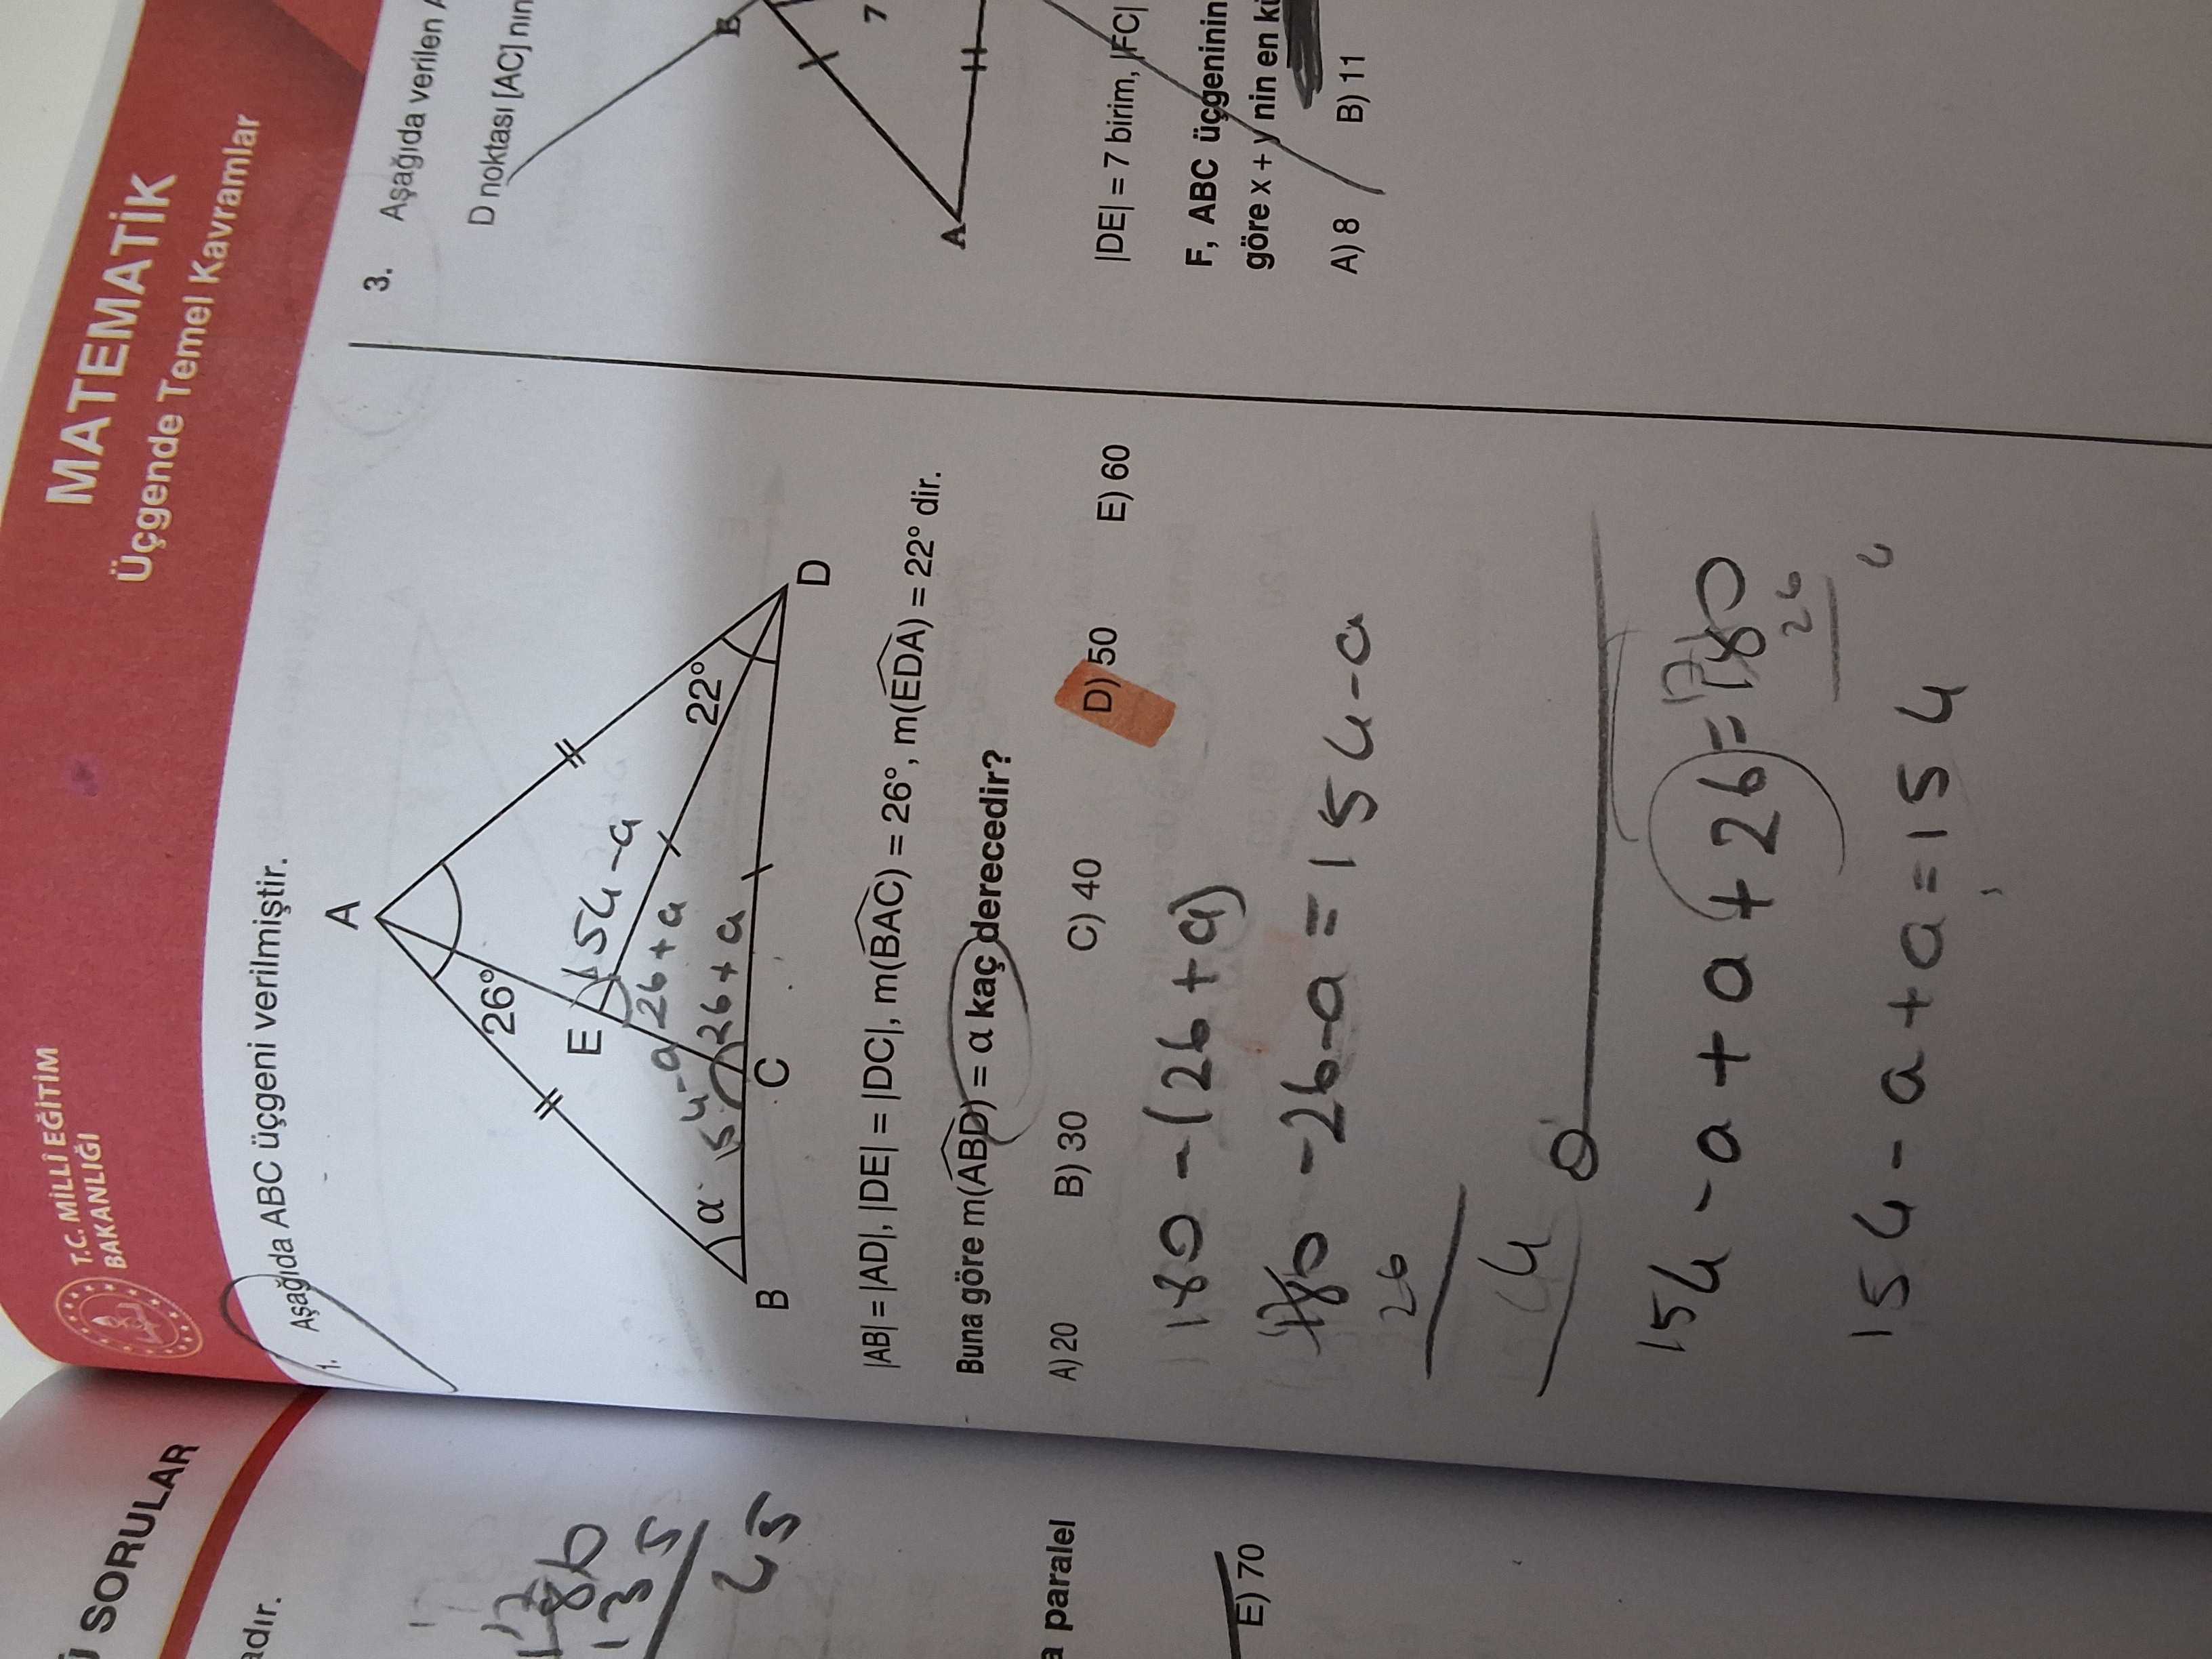 T.C. MİLLÎ EĞİTİM
BAKANLIĞI
MATEMATİK
Üçgende Temel Kavramlar
1. Aşağıda ABC üçgeni verilmiştir.
A
26°
E
154-a
22°
26+a
α
154-a
26+a
B
C
D
|AB| = |AD|, |DE| = |DC|, m(BAC) = 26°, m(EDA) = 22° dir.
Buna göre m(ABD) = α kaç derecedir?
A) 20
B) 30
C) 40
D) 50
E) 60
180-(26+a)
180-26-a=154-a
26
4
154-a+a+26=180
26
154-a+a=154
3. Aşağıda verilen
D noktası [AC] nın
B
7
A
|DE| = 7 birim, |FC|
F, ABC üçgeninin
göre x + y nin en
A) 8
B) 11
SORULAR
adır.
180
135
45
paralel
E) 70